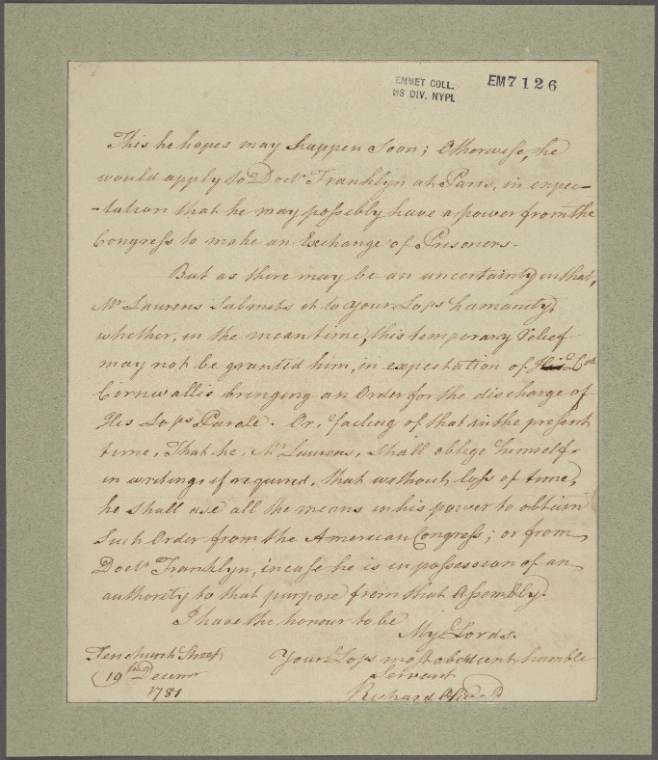 EMMET COLL.
MS DIV. NYPL
EM7126
This he hopes may happen soon; Otherwise, he
would apply to Doctr Franklyn at Paris, in expec-
-tation that he may possibly have a power from the
Congress to make an Exchange of Prisoners.
But as there may be an uncertainty in that,
Mr Laurens Submits it to your Lops humanity,
whether, in the mean time, this temporary Relief
may not be granted him, in expectation of Ld
Cornwallis bringing an Order for the discharge of
His Lops Parole. Or, failing of that in the present
time, That he, Mr Laurens, shall oblige himself,
in writing if required, that without loss of time,
he shall use all the means in his power to obtain
Such Order from the American Congress; or from
Doctr Franklyn, incase he is in possession of an
authority to that purpose from that Assembly.
I have the honour to be
My Lords.
Fenchurch Street
Your Lops most obedient humble
19 Decemr
Servant
1781
Richard